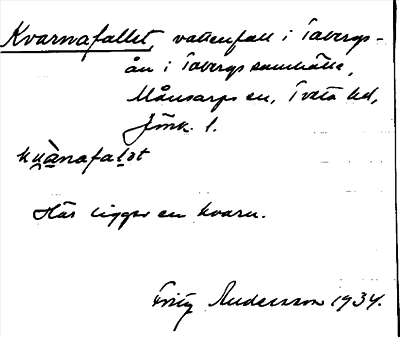 Kvarnafallet, vattenfall i Tabergs-
ån i Tabergs samhälle,
Månsarps sn, Tveta hd,
Jönk. l.
kvànafalet
Här ligger en kvarn.
Fritz Andersson 1934.